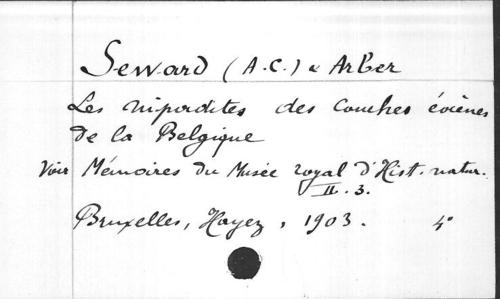 Seward (A.C.) & Arber
Les nipadites des couches éocènes
de la Belgique
Voir Mémoires du Musée royal d'Hist. natur.
II. 3.
Bruxelles, Hayez, 1903. 4°